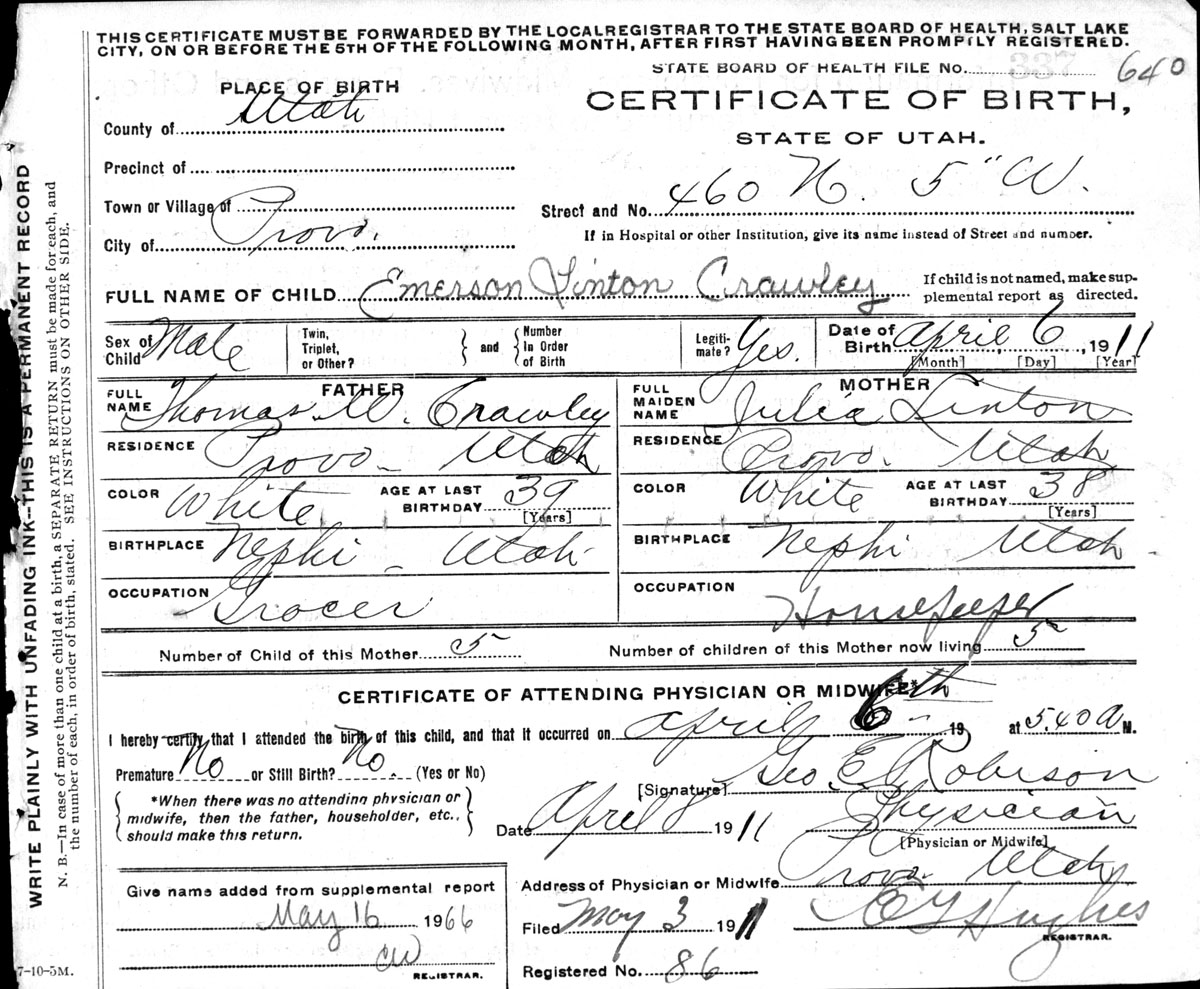 THIS CERTIFICATE MUST BE FORWARDED BY THE LOCAL REGISTRAR TO THE STATE BOARD OF HEALTH, SALT LAKE
CITY, ON OR BEFORE THE 5TH OF THE FOLLOWING MONTH, AFTER FIRST HAVING BEEN PROMPTLY REGISTERED.
STATE BOARD OF HEALTH FILE No. 337 640
PLACE OF BIRTH
CERTIFICATE OF BIRTH,
STATE OF UTAH.
County of Utah
Precinct of
Town or Village of
City of Provo.
Street and No. 460 N. 5" W.
If in Hospital or other Institution, give its name instead of Street and number.
FULL NAME OF CHILD Emerson Linton Crawley
If child is not named, make sup-
plemental report as directed.
Sex of Child Male
Twin, Triplet, or Other?
and
Number In Order of Birth
Legiti-mate? Yes.
Date of Birth April 6, 1911
[Month] [Day] [Year]
FATHER
FULL NAME Thomas W. Crawley
RESIDENCE Provo - Utah
COLOR White AGE AT LAST BIRTHDAY 39 [Years]
BIRTHPLACE Nephi - Utah
OCCUPATION Grocer
MOTHER
FULL MAIDEN NAME Julia Linton
RESIDENCE Provo. Utah
COLOR White AGE AT LAST BIRTHDAY 38 [Years]
BIRTHPLACE Nephi Utah -
OCCUPATION Housekeeper
Number of Child of this Mother 5
Number of children of this Mother now living 5
CERTIFICATE OF ATTENDING PHYSICIAN OR MIDWIFE*
I hereby certify that I attended the birth of this child, and that it occurred on April 6th - 19 at 5.40 A M.
Premature No or Still Birth? No. (Yes or No)
*When there was no attending physician or
midwife, then the father, householder, etc.,
should make this return.
[Signature] Geo E Robison
Date April 8 1911
Physician
[Physician or Midwife]
Address of Physician or Midwife Provo. Utah
Filed May 3 1911
E G Hughes
REGISTRAR.
Registered No. 86
Give name added from supplemental report
May 16 1966
CW
REGISTRAR.
7-10-5M.
WRITE PLAINLY WITH UNFADING INK--THIS IS A PERMANENT RECORD
N. B.—In case of more than one child at a birth, a SEPARATE RETURN must be made for each, and
the number of each, in order of birth, stated. SEE INSTRUCTIONS ON OTHER SIDE.